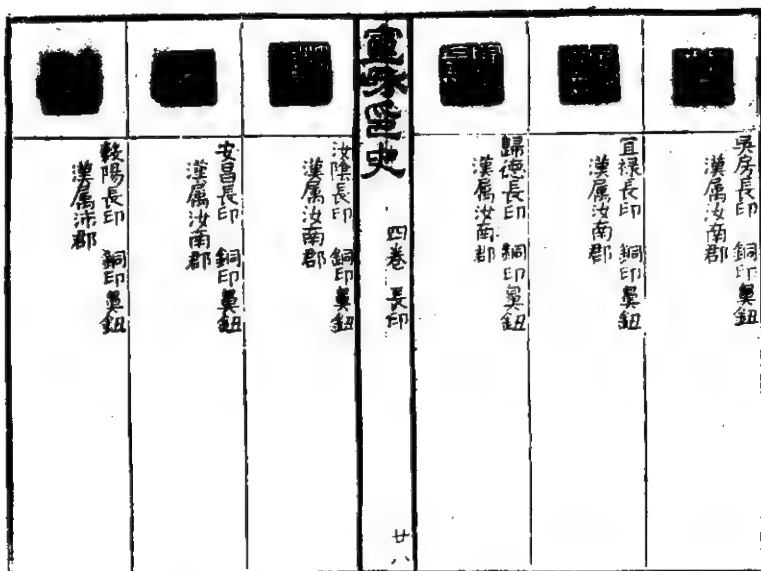 吳房長印 銅印鼻鈕
漢属汝南郡
宜禄長印 銅印鼻鈕
漢属汝南郡
歸德長印 銅印鼻鈕
漢属汝南郡
四卷 長印
廿八
汝陰長印 銅印鼻鈕
漢属汝南郡
安昌長印 銅印鼻鈕
漢属汝南郡
穀陽長印 銅印鼻鈕
漢属沛郡